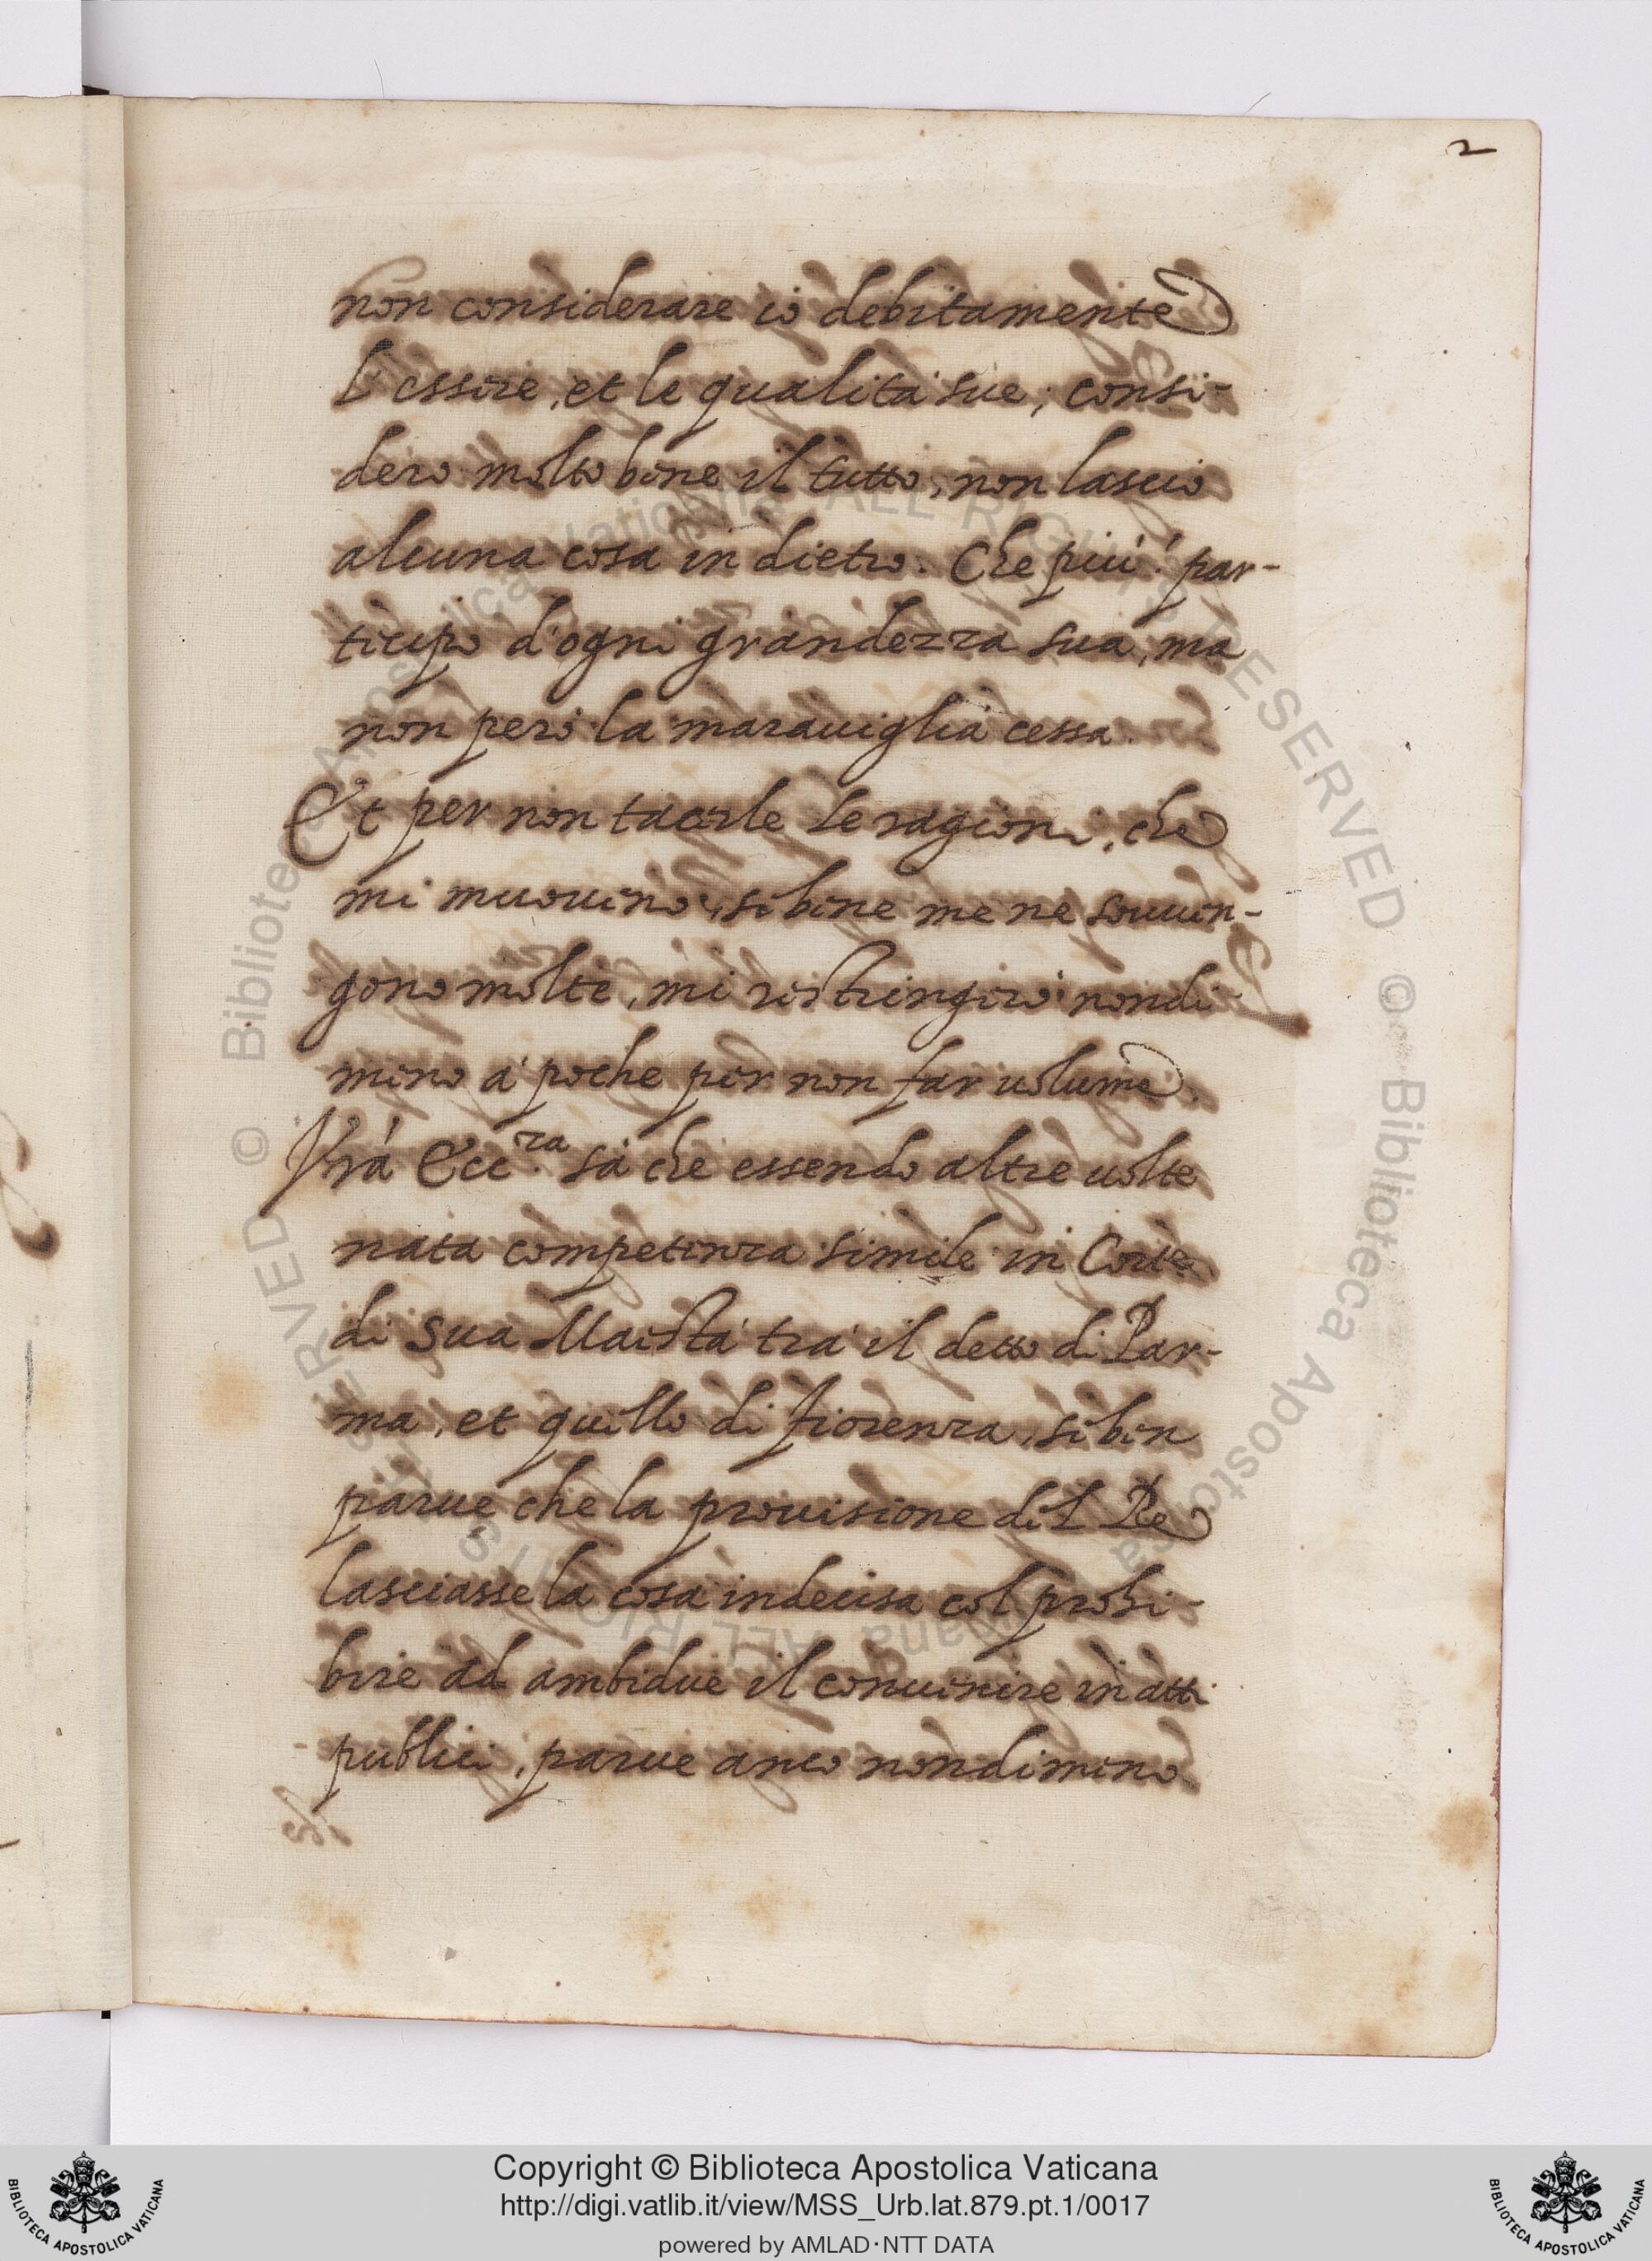 2
non considerare io debitamente
l'essere, et le qualità sue; consi-
dero molto bene il tutto, non lascio
alcuna cosa in dietro. Che più? par-
ticipo d'ogni grandezza sua, ma
non però la marauiglia cessa.
Et per non tacerle le ragioni, che
mi muoueno, sebene me ne souuen-
gono molte, mi restringerò nondi
meno à poche per non far uolume.
Vrà Ecc.za sà che essendo altre uolte
nata competenza simile in Corte
di sua Maestà trà il detto di Par-
ma, et quello di fiorenza, seben
parue che la prouisione del Re
lasciasse la cosa indecisa col prohi-
bire ad ambidue il conuenire in atti
publici, parue anco nondimeno
© Biblioteca Apostolica Vaticana ALL RIGHTS RESERVED © Biblioteca Apostolica Vaticana ALL RIGHTS RESERVED
Copyright © Biblioteca Apostolica Vaticana
http://digi.vatlib.it/view/MSS_Urb.lat.879.pt.1/0017
powered by AMLAD·NTT DATA
BIBLIOTECA APOSTOLICA VATICANA
BIBLIOTECA APOSTOLICA VATICANA